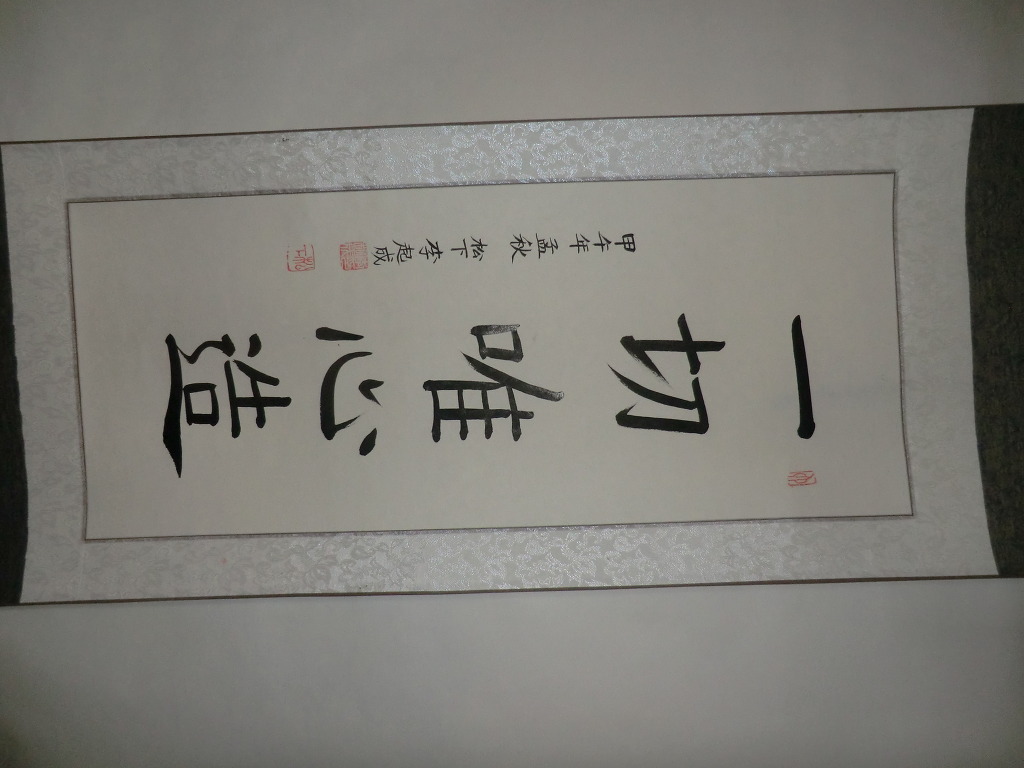 一切唯心造
甲午年孟秋 松下李起成